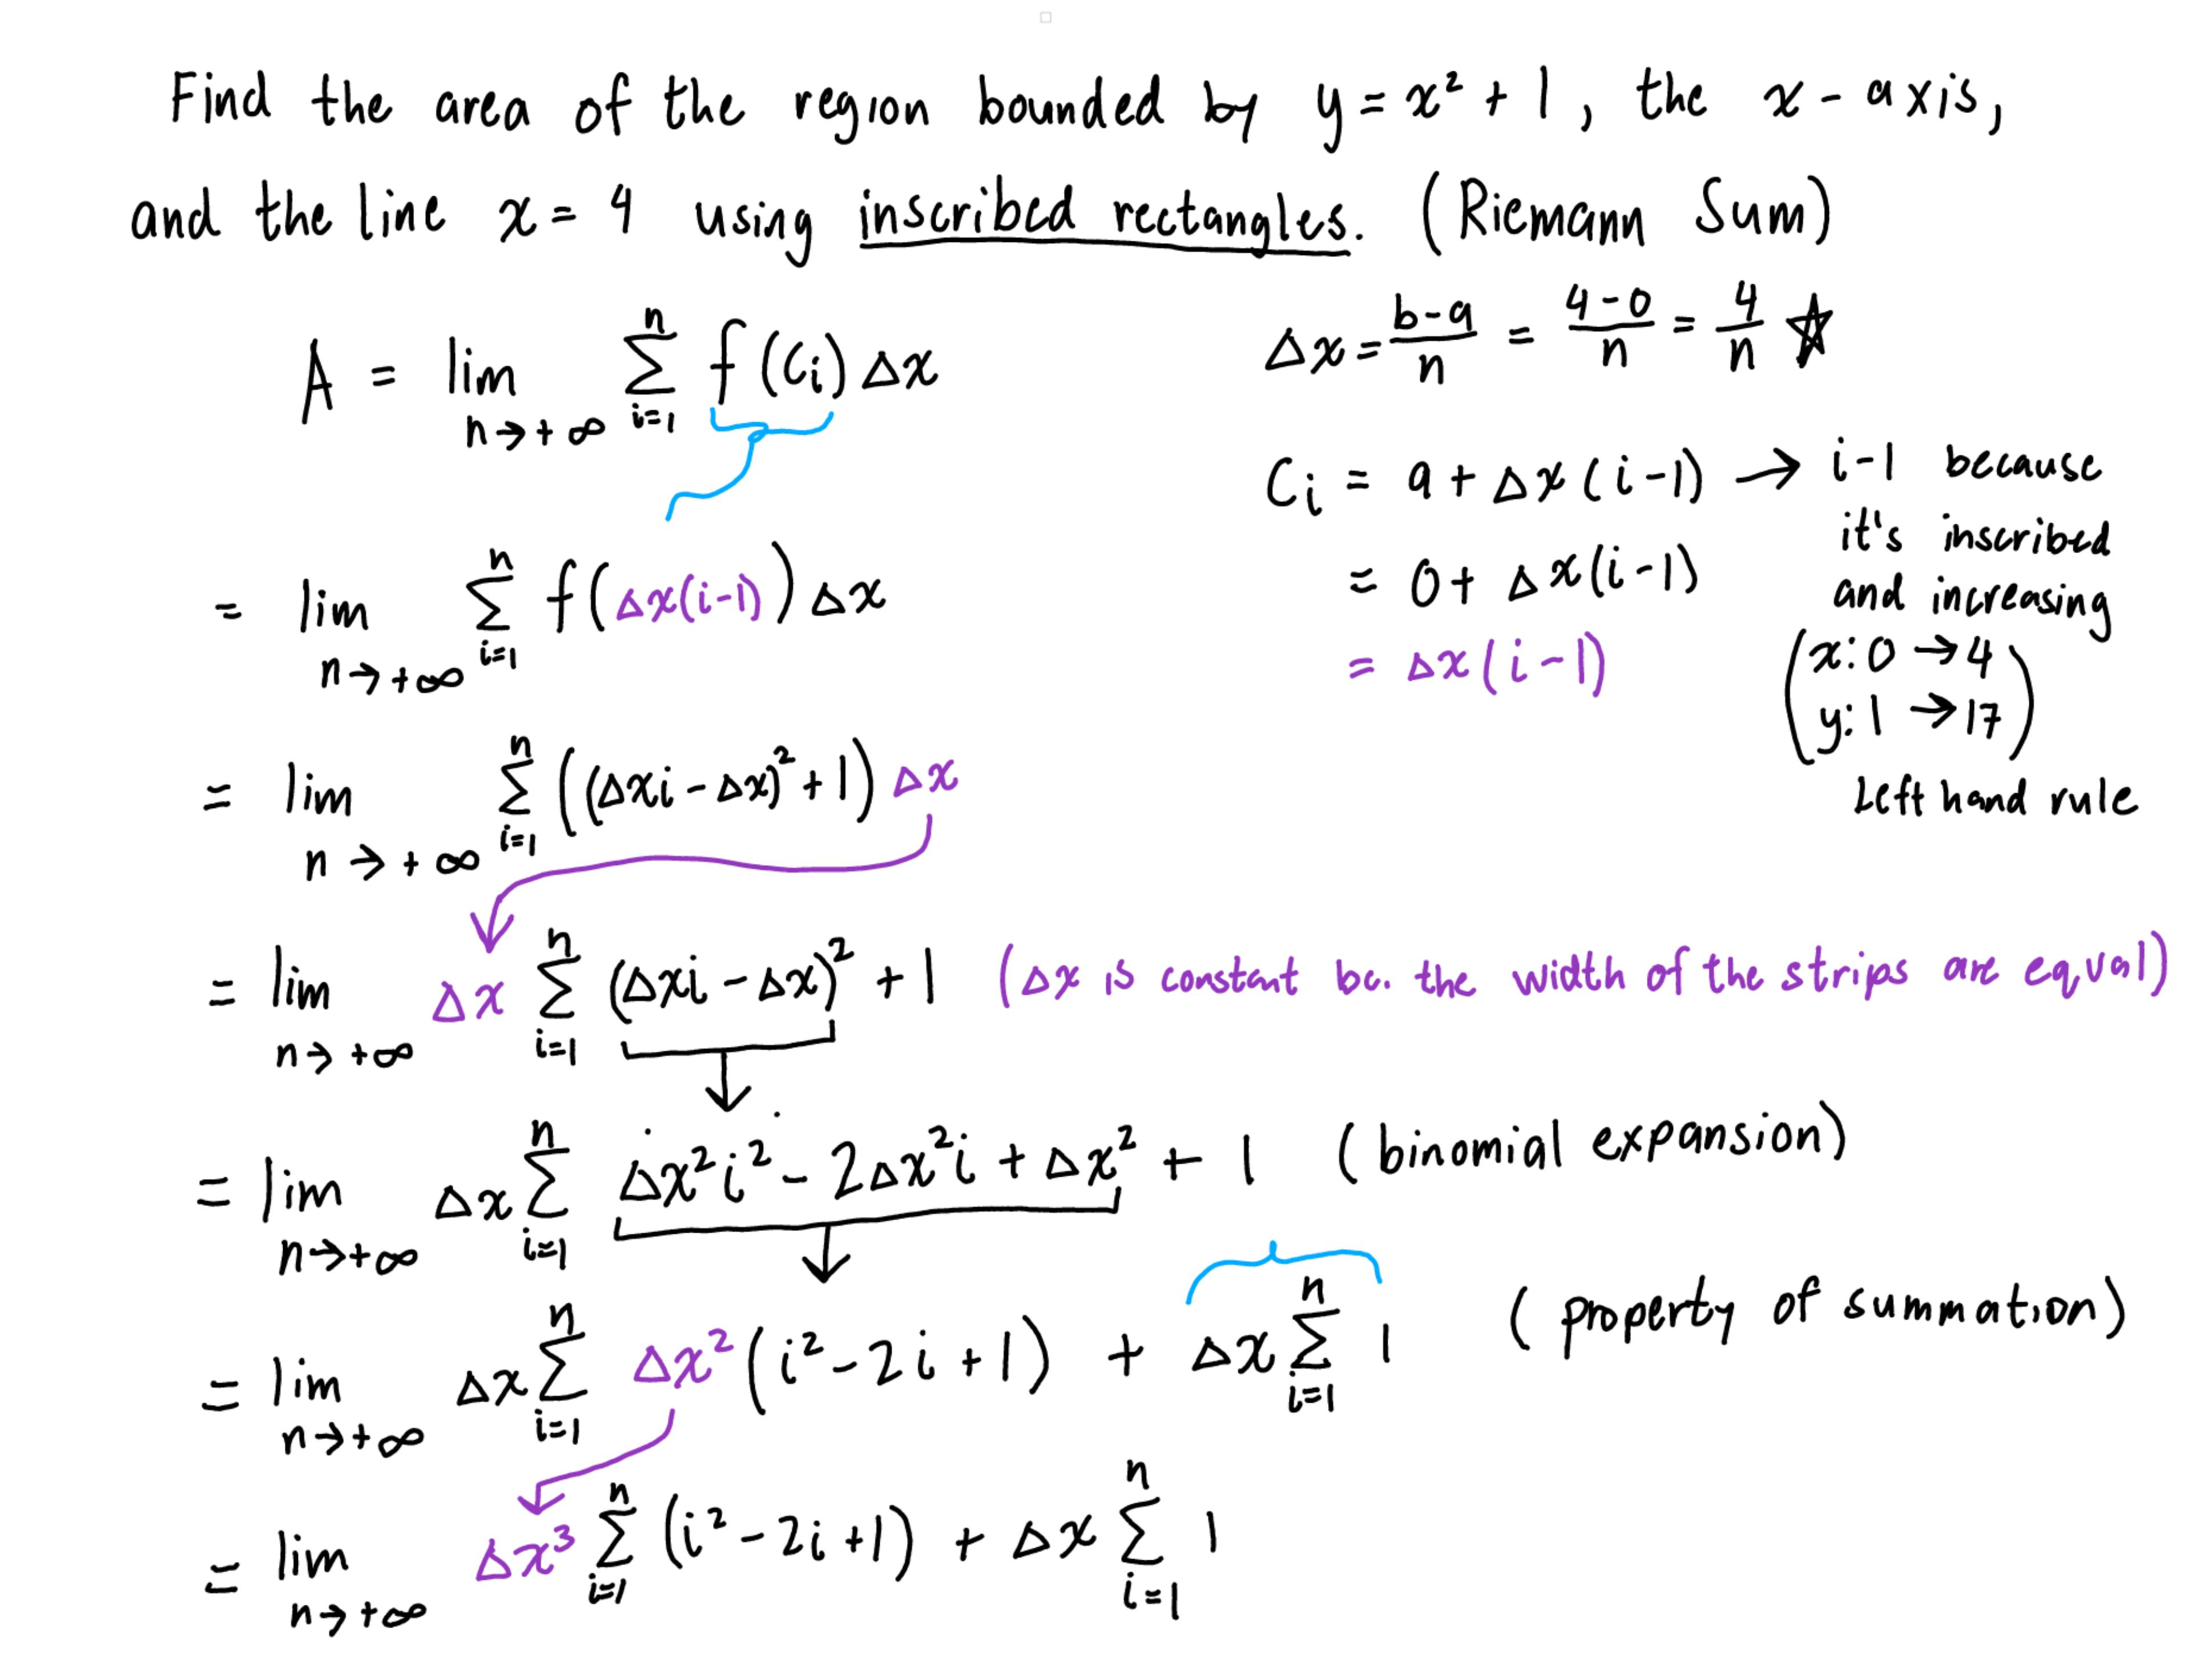 Find the area of the region bounded by y = x² + 1, the x-axis,
and the line x = 4 using inscribed rectangles. (Riemann Sum)
A = lim n→+∞ n Σ i=1 f(Ci) Δx
Δx = b-a/n = 4-0/n = 4/n ☆
Ci = a + Δx(i-1) → i-1 because
it's inscribed
and increasing
= 0 + Δx(i-1)
= Δx(i-1)
(x: 0 → 4
y: 1 → 17)
Left hand rule
= lim n→+∞ n Σ i=1 f(Δx(i-1)) Δx
= lim n→+∞ n Σ i=1 ((Δxi - Δx)² + 1) Δx
= lim n→+∞ Δx n Σ i=1 (Δxi - Δx)² + 1 (Δx is constant bc. the width of the strips are equal)
= lim n→+∞ Δx n Σ i=1 Δx²i² - 2Δx²i + Δx² + 1 (binomial expansion)
= lim n→+∞ Δx n Σ i=1 Δx²(i² - 2i + 1) + Δx n Σ i=1 1 (property of summation)
= lim n→+∞ Δx³ n Σ i=1 (i² - 2i + 1) + Δx n Σ i=1 1